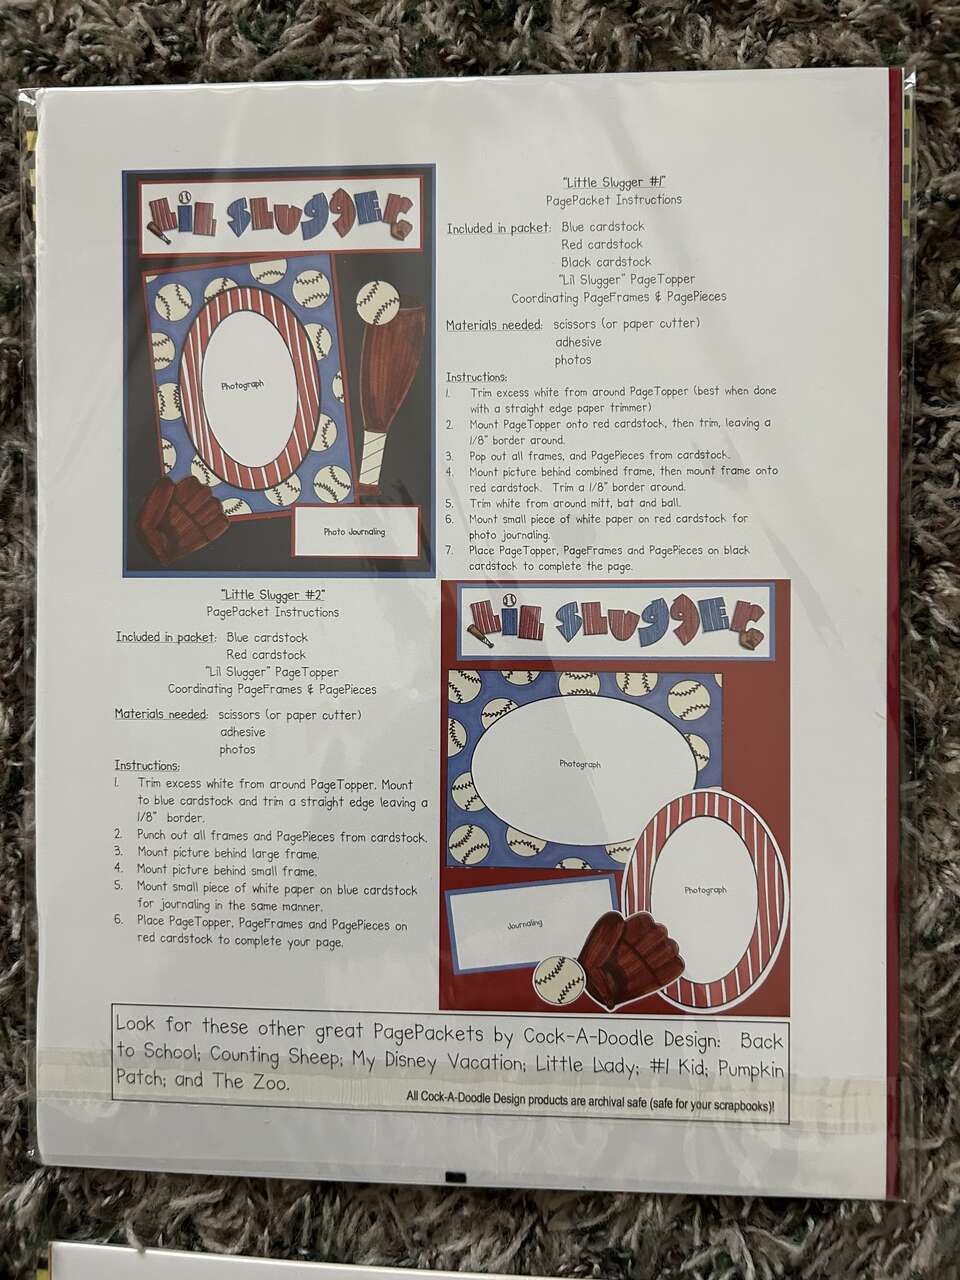 LiL SLUGGER
Photograph
Photo Journaling
"Little Slugger #1"
PagePacket Instructions
Included in packet: Blue cardstock
Red cardstock
Black cardstock
"Lil Slugger" PageTopper
Coordinating PageFrames & PagePieces
Materials needed: scissors (or paper cutter)
adhesive
photos
Instructions:
1. Trim excess white from around PageTopper (best when done
with a straight edge paper trimmer)
2. Mount PageTopper onto red cardstock, then trim, leaving a
1/8" border around.
3. Pop out all frames, and PagePieces from cardstock.
4. Mount picture behind combined frame, then mount frame onto
red cardstock. Trim a 1/8" border around.
5. Trim white from around mitt, bat and ball.
6. Mount small piece of white paper on red cardstock for
photo journaling.
7. Place PageTopper, PageFrames and PagePieces on black
cardstock to complete the page.
"Little Slugger #2"
PagePacket Instructions
Included in packet: Blue cardstock
Red cardstock
"Lil Slugger" PageTopper
Coordinating PageFrames & PagePieces
Materials needed: scissors (or paper cutter)
adhesive
photos
Instructions:
1. Trim excess white from around PageTopper. Mount
to blue cardstock and trim a straight edge leaving a
1/8" border.
2. Punch out all frames and PagePieces from cardstock.
3. Mount picture behind large frame.
4. Mount picture behind small frame.
5. Mount small piece of white paper on blue cardstock
for journaling in the same manner.
6. Place PageTopper, PageFrames and PagePieces on
red cardstock to complete your page.
LiL SLUGGER
Photograph
Photograph
Journaling
Look for these other great PagePackets by Cock-A-Doodle Design: Back
to School; Counting Sheep; My Disney Vacation; Little Lady; #1 Kid; Pumpkin
Patch; and The Zoo.
All Cock-A-Doodle Design products are archival safe (safe for your scrapbooks)!